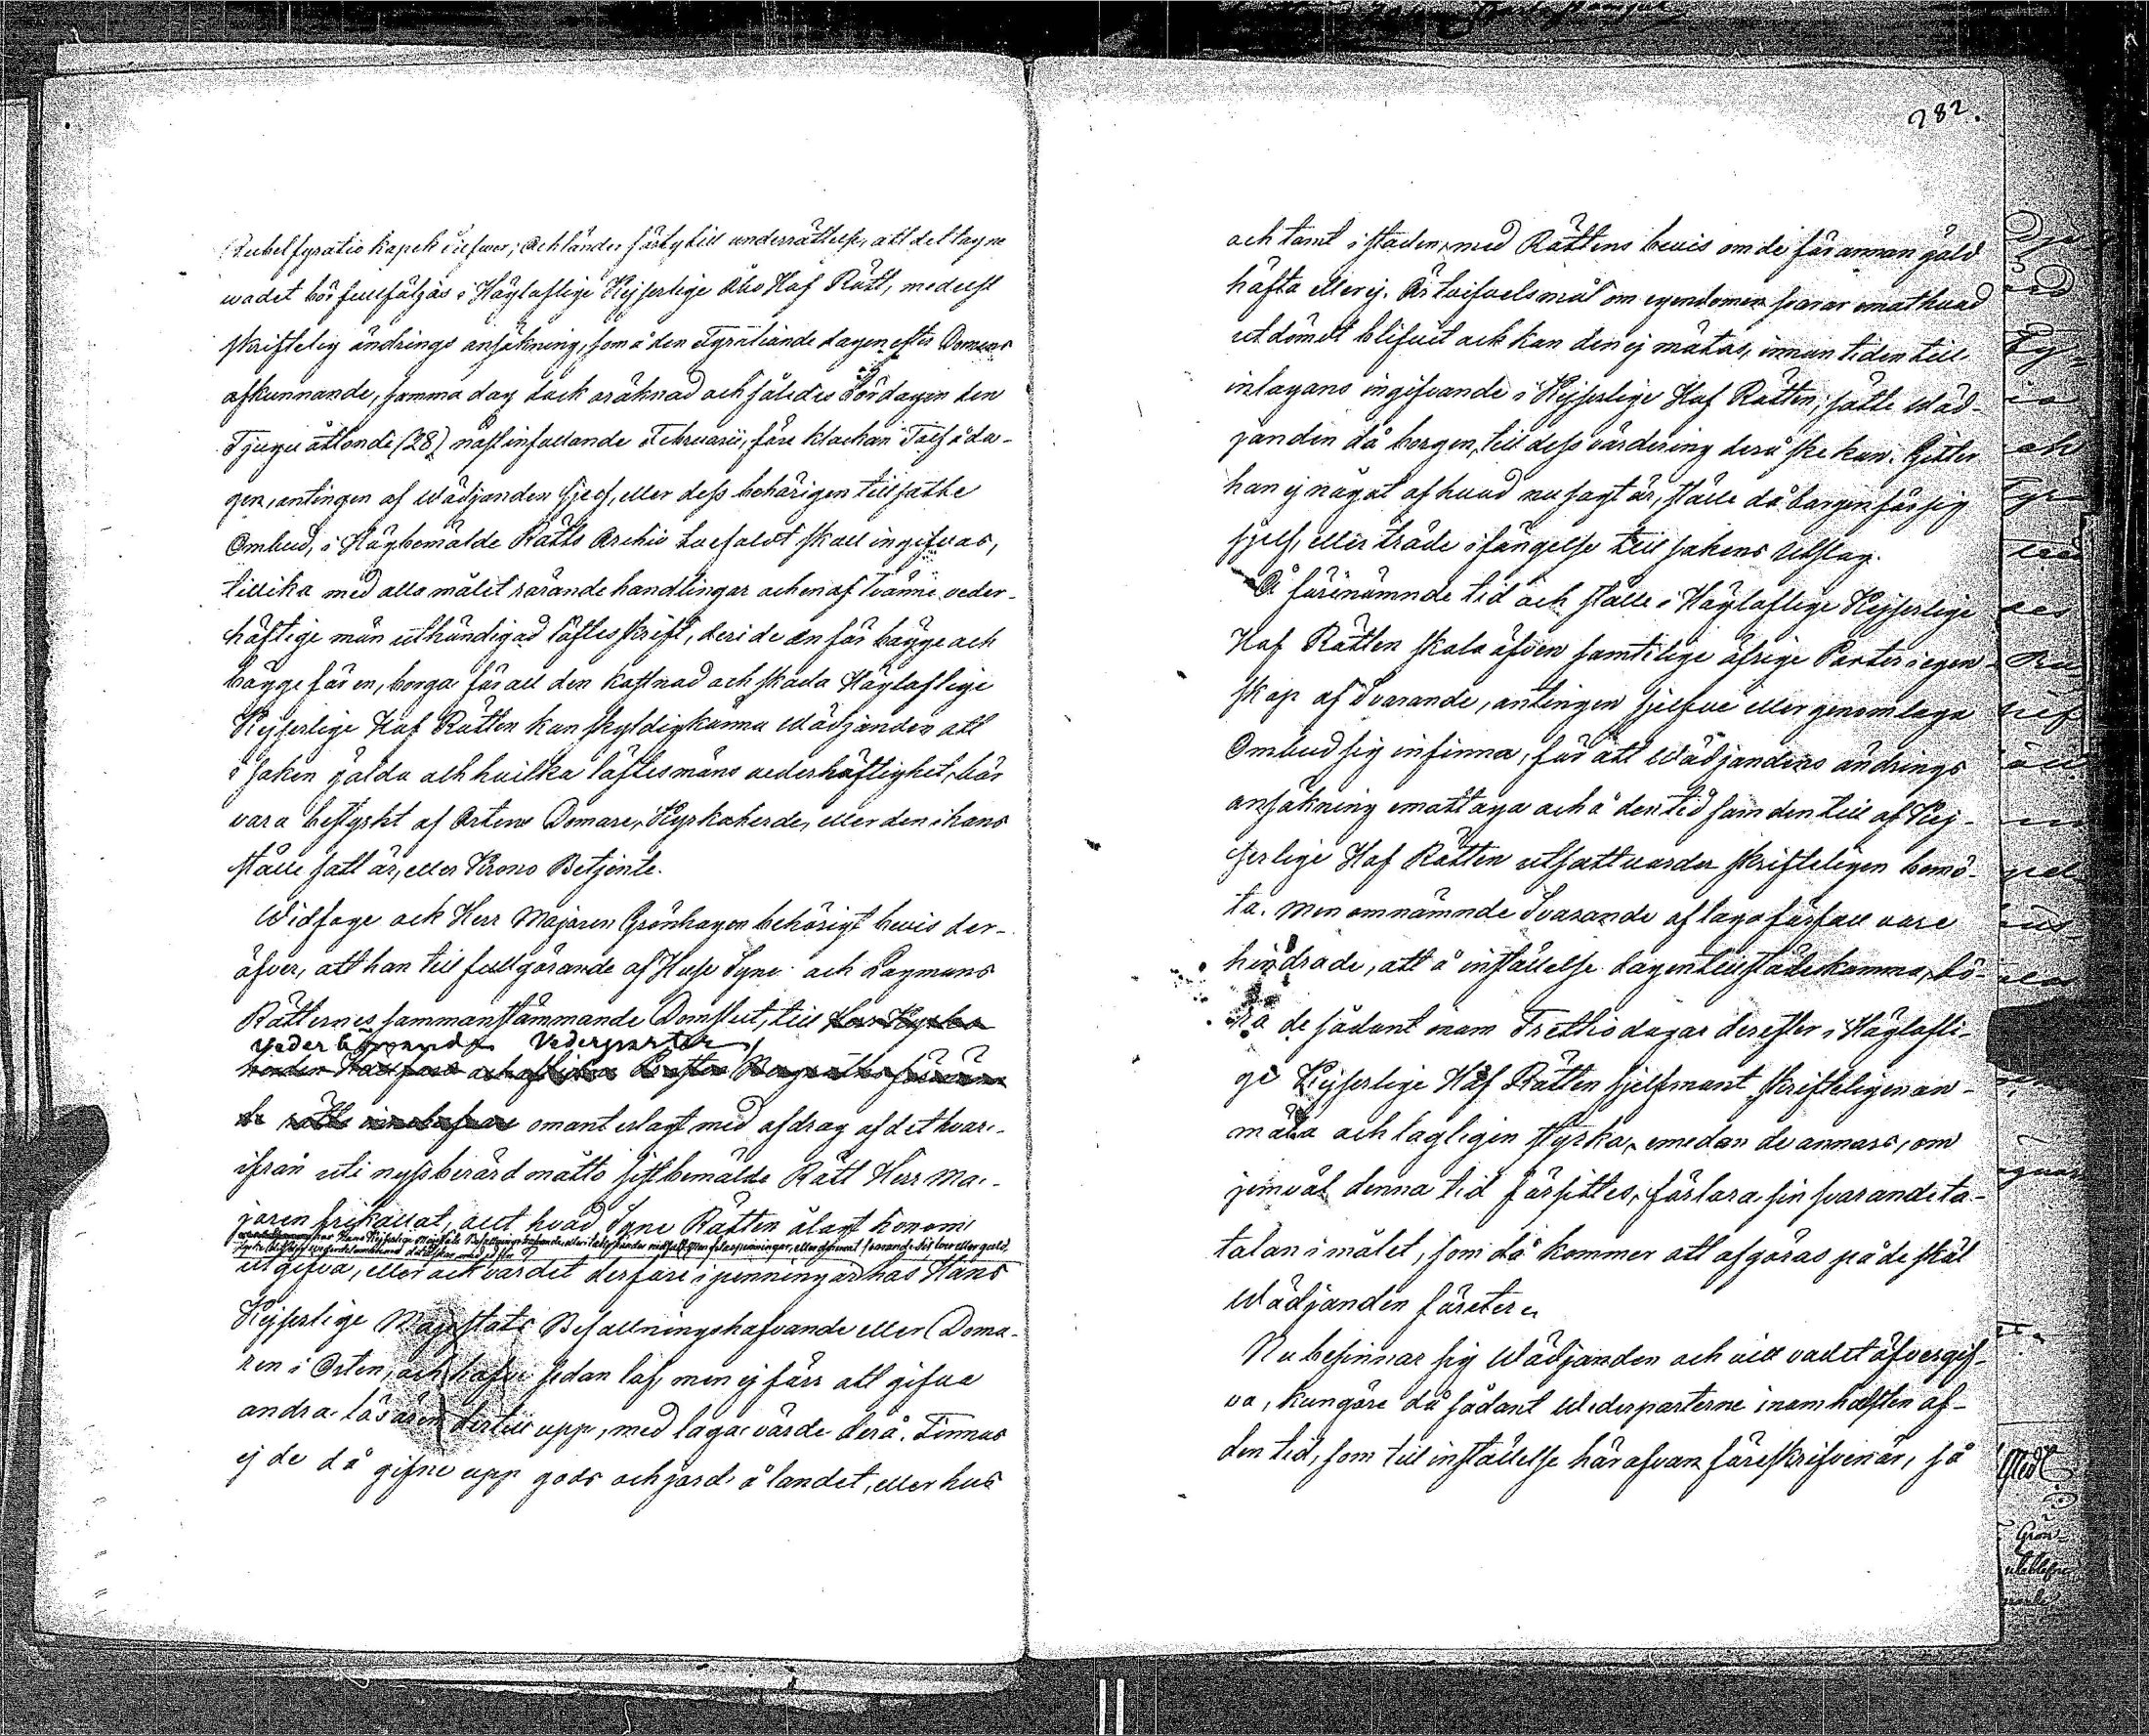 Rubel fyratio kopek Silfwer; Och länder härhy till underrättelse, att det tagne
wadet bör fullföljas i Högloflige Kejserlige Åbo Hof Rätt, medelst
skriftelig ändrings ansökning, som å den Fyrationde dagen efter Domens
afkunnande, somma dag dock oräknad och således Lördagen den
Tjugu åttonde (28) nästinfallande Februarii, före klockan Tolf å da-
gen, antingen af Wädjanden sjelf, eller dess behörigen tillsatte
Ombud, i Högbemälde Rätts Archiv tuefaldt skall ingifvas,
tillika med alla målet rörande handlingar och en af tvänne veder-
häftige män uthändigad löftesskrift, deri de en för bägge och
bägge för en, borga för all den kostnad och skada Höglaflige
Kejserlige Hof Rätten kan skyldigkänna Wädjanden att
i saken gälda och hvilka löftesmäns vederhäftighet, bör
vara bestyrkt af Ortens Domare, Kyrkoherde, eller den i hans
ställe satt är, eller Krono Betjente.
Widfoge ock Herr Majoren Grönhagen behörigt bevis der-
öfver, att han till fullgörande af Huse Syne och Lagmans
Rätternes sammanstämmande Domslut, till
vederbörande Vederparter
omant erlagt med afdrag af det hvar-
ifrån uti nyssberörd måtto sistbemälde Rätt Herr Ma-
joren frikallat, allt hvad Syne Rätten ålagt honom
utgifva, eller ock värdet derföre i penningar hos Hans
Kejserlige Majestäts Befallningshafvande eller Doma-
ren i Orten, och hafve sedan lof, men ej förr att gifva
andra lösören dertill upp, med laga värde derå. Finnas
ej de då gifve upp gods och jord å landet, eller hus
282.
och tomt i staden, med Rättens bevis om de för annan gäld
häfta eller ej. Är tvifvelsmål om egendomen svarar emot hvad
utdömdt blifvit och kan den ej mätas, innan tiden till
inlagans ingifvande i Kejserlige Hof Rätten, sätte Wäd-
janden då borgen, till dess värdering derå ske kan. Gitter
han ej något af hvad nu sagt är, ställe då borgen för sig
sjelf, eller träde i fängelse till sakens Utslag.
Å förenämnde tid och ställe i Höglaflige Kejserlige
Hof Rätten skola äfven samtelige öfrige Parter i egen-
skap af Svarande, antingen sjelfve eller genom laga
Ombud sig infinna, för att Wädjandens ändrings
ansökning emottaga och å den tid som den till af Kej-
serlige Hof Rätten utsatt varder skrifteligen bemö-
ta. Men omnämnde Svarande af laga förfall vare
hindrade, att å inställelse dagen tillstädeskomma, bö-
ra de sådant inom Trettio dagar derefter i Höglofli-
ge Kejserlige Hof Rätten sjelfmant skrifteligen an-
mäla och lagligen styrka, emedan de annars, om
jemväl denna tid försittes, förlora sin svarandeta-
talan i målet, som då kommer att afgöras på de skäl
Wädjanden företer.
Nu besinnar sig Wädjanden och vill vadet öfvergif-
va, kungöre då sådant Wederparterne inom hälften af
den tid, som till inställelse här ofvan föreskrifven är, så